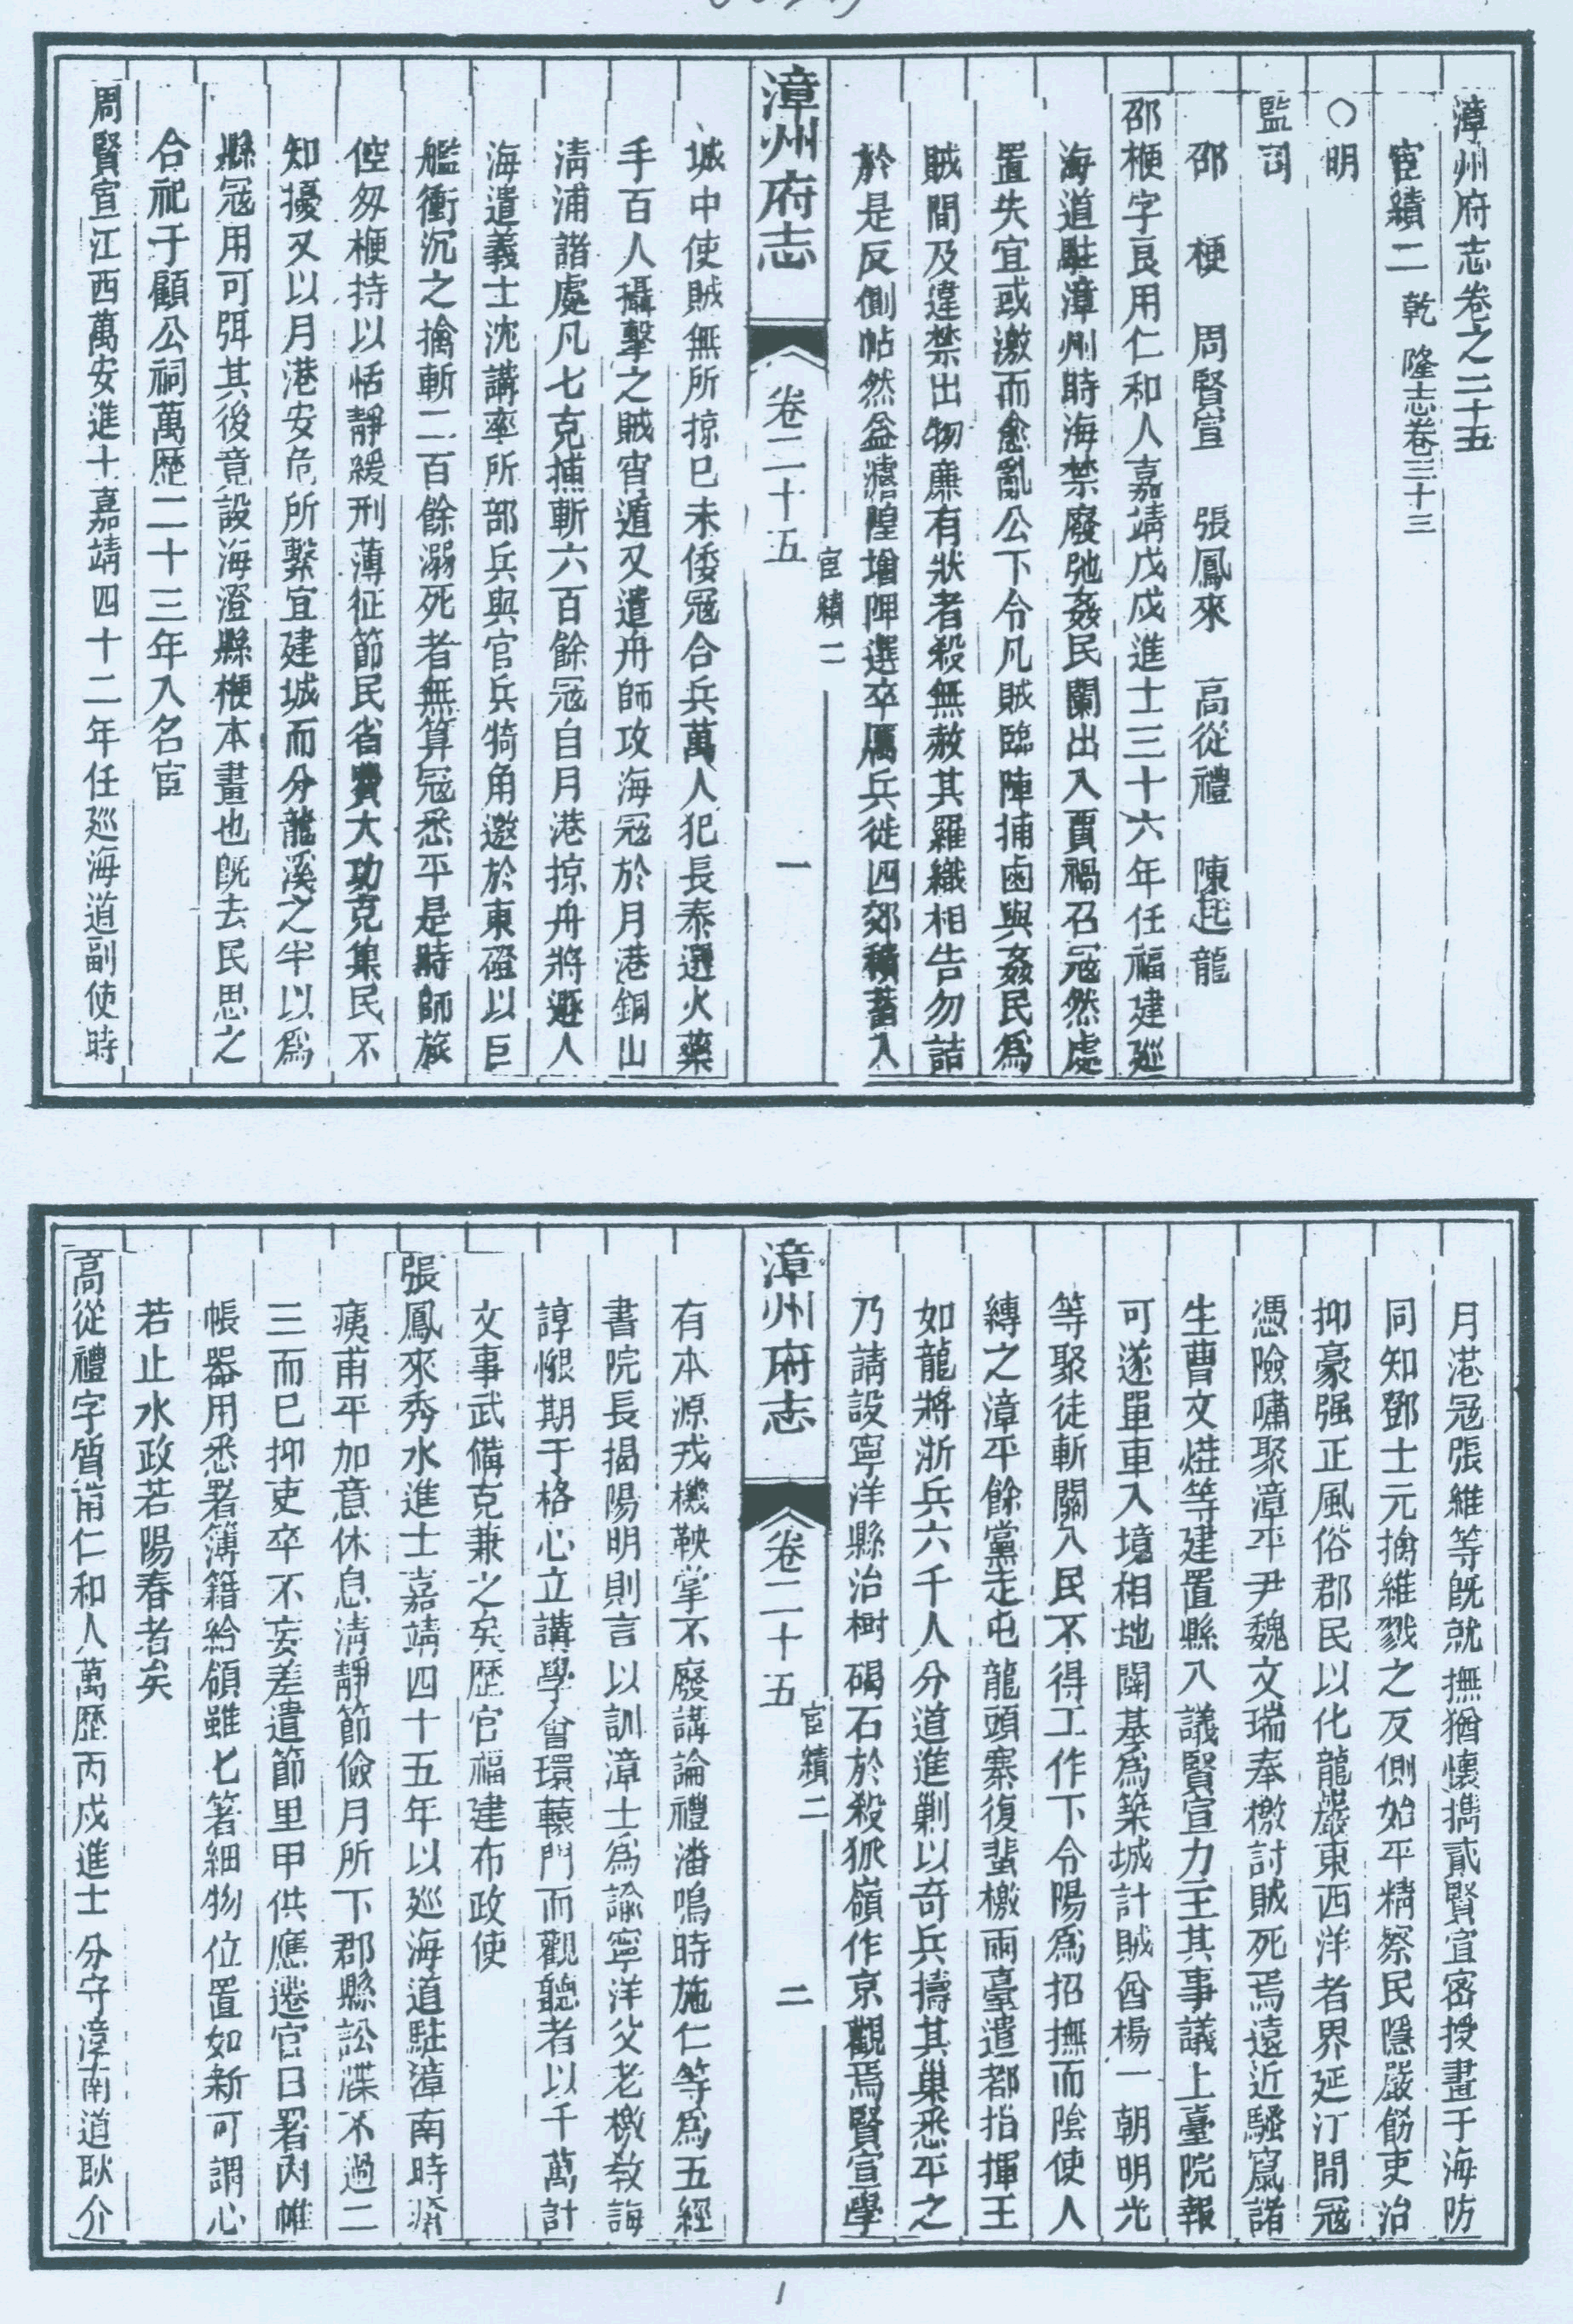 漳州府志卷之二十五
宦績二 乾隆志卷三十三
○明
監司
邵梗 周賢宣 張鳳來 高從禮 陳起龍
邵梗字良用仁和人嘉靖戊戌進士三十六年任福建廵
海道駐漳州時海禁廢弛姦民闌出入賈禍召冦然處
置失宜或激而愈亂公下令凡賊臨陣捕鹵與姦民爲
賊間及違禁出物廉有狀者殺無赦其羅織相告勿詰
於是反側帖然益濬隍增陴選卒厲兵徙四郊積蓄入
漳州府志 卷二十五 宦績二 一
城中使賊無所掠巳未倭冦合兵萬人犯長泰選火藥
手百人攝擊之賊宵遁又遣舟師攻海冦於月港銅山
淸浦諸處凡七克捕斬六百餘冦自月港掠舟將遯人
海遣義士沈講率所部兵與官兵犄角邀於東磴以巨
艦衝沉之擒斬二百餘溺死者無算冦悉平是時師旅
倥匆梗持以恬靜緩刑薄征節民省費大功克集民不
知擾又以月港安危所繫宜建城而分龍溪之半以爲
縣冦用可弭其後竟設海澄縣梗本畫也旣去民思之
合祀于顧公祠萬歷二十三年入名宦
周賢宣江西萬安進士嘉靖四十二年任廵海道副使時
月港冦張維等旣就撫猶懷攜貳賢宣密授畫于海防
同知鄧士元擒維戮之反側始平精察民隱嚴飭吏治
抑豪强正風俗郡民以化龍巖東西洋者界延汀閒冦
憑險嘯聚漳平尹魏文瑞奉檄討賊死焉遠近騷竄諸
生曹文燁等建置縣八議賢宣力主其事議上臺院報
可遂單車入境相地闢基爲築城計賊酋楊一朝明光
等聚徒斬關入民不得工作下令陽爲招撫而陰使人
縛之漳平餘黨走屯龍頭寨復蜚檄兩臺遣都指揮王
如龍將浙兵六千人分道進剿以奇兵擣其巢悉平之
乃請設寧洋縣治樹碣石於殺狐嶺作京觀焉賢宣學
漳州府志 卷二十五 宦績二 二
有本源戎機鞅掌不廢講論禮潘鳴時施仁等爲五經
書院長揭陽明則言以訓漳士爲諭寧洋父老檄敎誨
諄懇期于格心立講學會環轅門而觀聽者以千萬計
文事武備克兼之矣歷官福建布政使
張鳳來秀水進士嘉靖四十五年以廵海道駐漳南時瘡
痍甫平加意休息淸靜節儉月所下郡縣訟牒不過二
三而巳抑吏卒不妄差遣節里甲供應遷官日署內帷
帳器用悉署簿籍給領雖匕箸細物位置如新可謂心
若止水政若陽春者矣
高從禮字質甫仁和人萬歷丙戌進士分守漳南道耿介